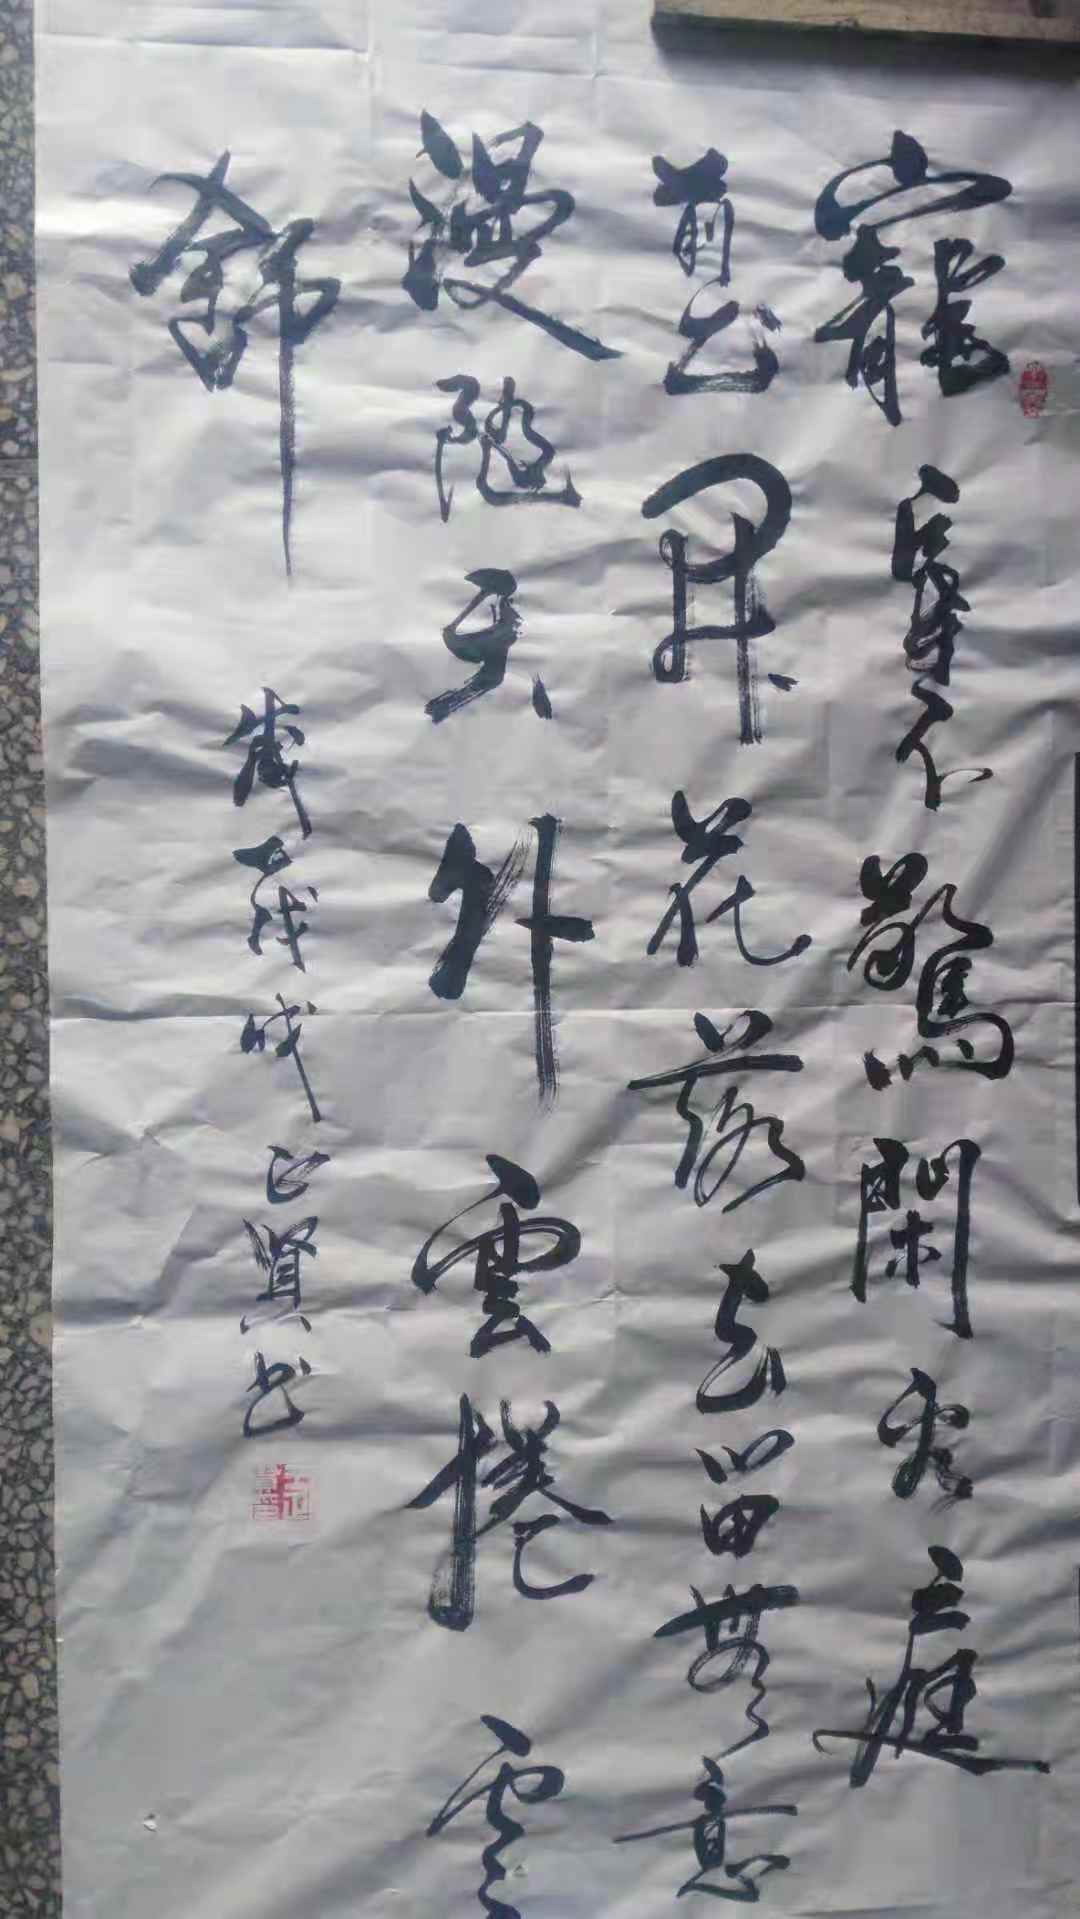 寵辱不驚閑看庭
前花開花落去留無意
漫隨天外雲捲雲
舒
歲在戊戌正賢书